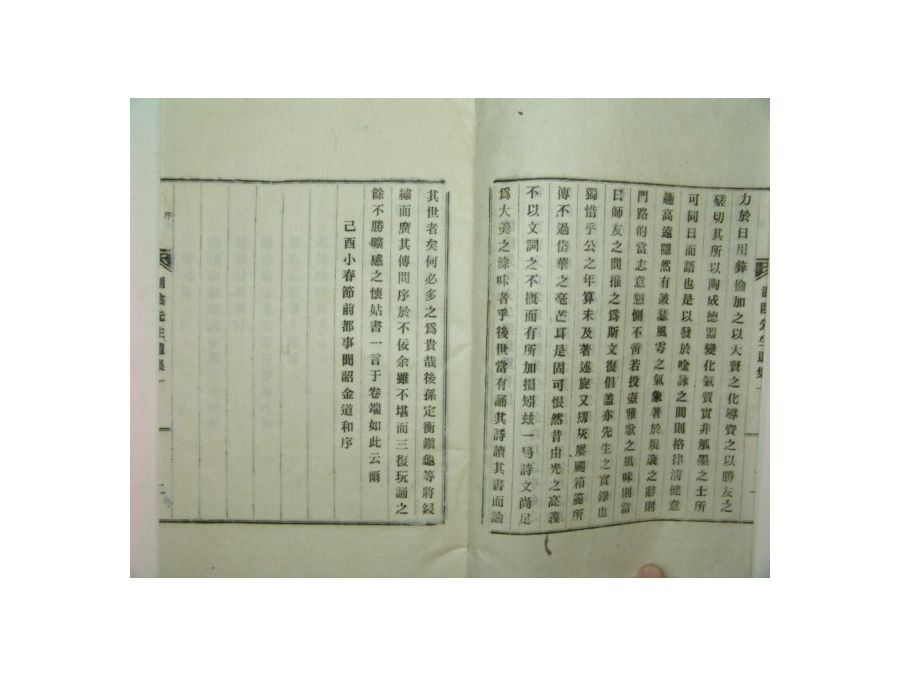 力於日用彝倫加之以大賢之化導資之以勝友之
磋切其所以陶成德器變化氣質實非觚墨之士所
可同日而語也是以發於唫詠之間則格律淸健意
趣高遠隱然有鼓瑟風雩之氣象著於規諷之辭則
門路的當志意懇惻不啻若投壺雅歌之風味則當
曰師友之間推之爲斯文復倡盖亦先生之實錄也
獨惜乎公之年算未及著述旋又刼灰屢颺箱簏所
傳不過岱華之毫芒耳是固可恨然昔由光之高義
不以文詞之不槪而有所加損矧玆一号詩文尚足
爲大羮之餘味者乎後世當有誦其詩讀其書而論
其世者矣何必多之爲貴哉後孫定衡鎭龜等將鋟
繡而廣其傳問序於不佞余雖不堪而三復玩誦之
餘不勝曠感之懷姑書一言于卷端如此云爾
己酉小春節前都事聞韶金道和序
先生遺集一
序
先生遺集一
二